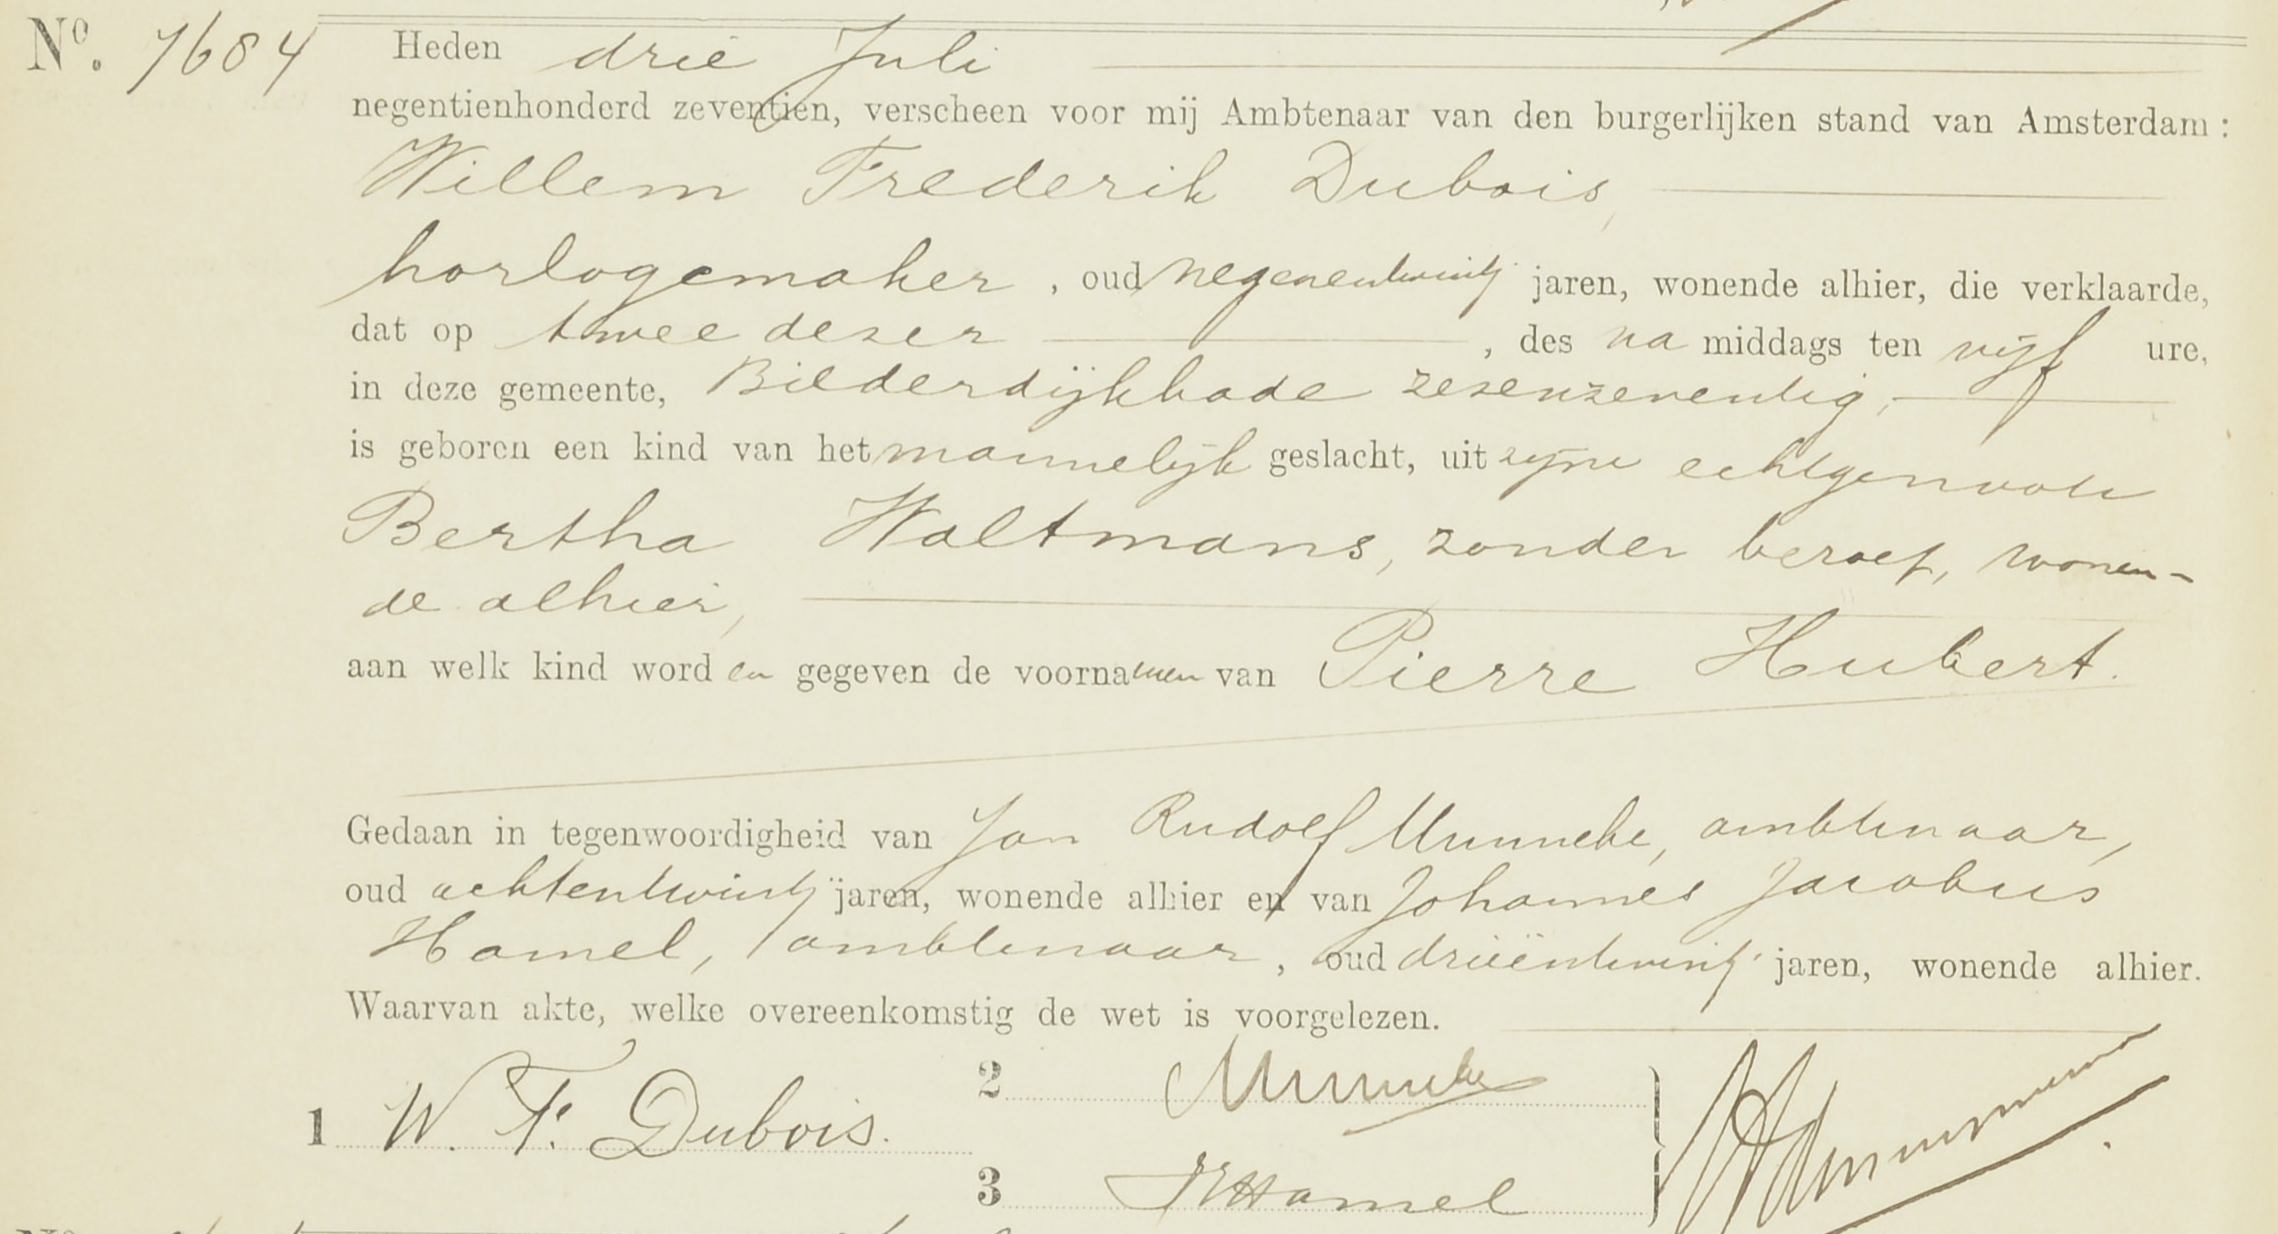 Nº. 7684 Heden drie Juli
negentienhonderd zeventien, verscheen voor mij Ambtenaar van den burgerlijken stand van Amsterdam:
Willem Frederik Dubois,
horlogemaker, oud negenentwintig jaren, wonende alhier, die verklaarde,
dat op twee dezer, des na middags ten vijf ure,
in deze gemeente, Bilderdijkkade zesenzeventig,
is geboren een kind van het mannelijk geslacht, uit zijne echtgenoote
Bertha Waltmans, zonder beroep, wonen-
de alhier,
aan welk kind worden gegeven de voornamen van Pierre Hubert.
Gedaan in tegenwoordigheid van Jan Rudolf Munneke, ambtenaar,
oud achtentwintig jaren, wonende alhier en van Johannes Jacobus
Hamel, ambtenaar, oud drieëntwintig jaren, wonende alhier.
Waarvan akte, welke overeenkomstig de wet is voorgelezen.
2 Munneke
1 W. F. Dubois.
3 Hamel